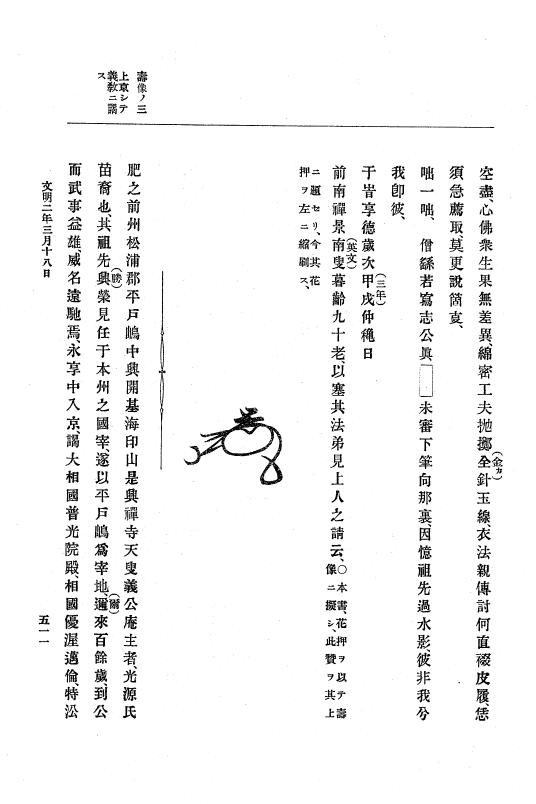 空盡、心佛衆生果無差異、綿密工夫抛擲全(金カ)針玉線、衣法親傳討何直裰皮履、恁
須急薦取、莫更說箇亥、
咄一咄、　僧繇若寫志公眞□未審下筆向那裏、因憶祖先過水影、彼非我兮
我卽彼、
于旹享德歲次甲戌(三年)仲穐日
前南禪景南(英文)叟暮齡九十老、以塞其法弟見上人之請云、○本書、花押ヲ以テ壽像ニ擬シ、此贊ヲ其上
ニ題セリ、今其花
押ヲ左ニ縮刷ス、
壽像ノ三
上京シテ
義敎ニ謁
ス
肥之前州松浦郡平戶嶋中興開基海印山是興禪寺天叟義公庵主者、光源氏
苗裔也、其祖先興(勝)榮見任于本州之國宰、遂以平戶嶋爲宰地、邇(爾)來百餘歲、到公
而武事益雄、威名遠馳焉、永享中入京、謁大相國普光院殿、相國優渥邁倫、特㳂
文明二年三月十八日
五一一